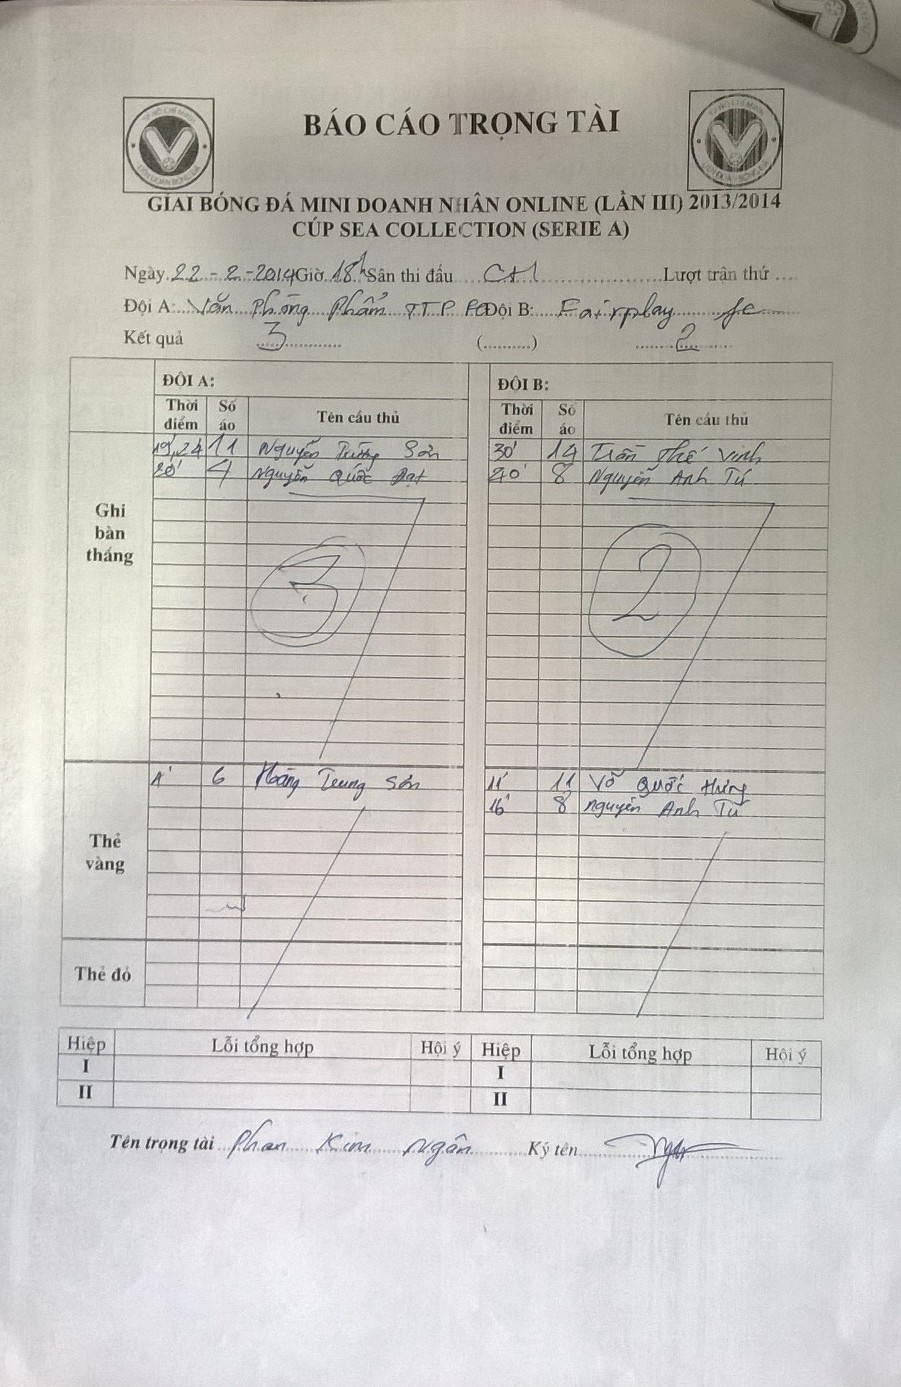 BÁO CÁO TRỌNG TÀI
GIẢI BÓNG ĐÁ MINI DOANH NHÂN ONLINE (LẦN III) 2013/2014
CÚP SEA COLLECTION (SERIE A)
Ngày 22 - 2 - 2014 Giờ 18h Sân thi đấu CA1 Lượt trận thứ ....
Đội A: Văn Phòng Phẩm TTP Đội B: Fairplay fc
Kết quả 3 (..........) 2
ĐỘI A: ĐỘI B:
Thời điểm Số áo Tên cầu thủ Thời điểm Số áo Tên cầu thủ
Ghi bàn thắng
19', 24 11 Nguyễn Trường Sơn 30' 14 Trần Thế Vinh
20' 4 Nguyễn Quốc Đạt 40' 8 Nguyễn Anh Tú
3 2
Thẻ vàng
6 Hoàng Trung Sơn 11' 11 Võ Quốc Hưng
16' 8 Nguyễn Anh Tú
Thẻ đỏ
Hiệp Lỗi tổng hợp Hội ý Hiệp Lỗi tổng hợp Hội ý
I I
II II
Tên trọng tài Phan Kim Ngân Ký tên